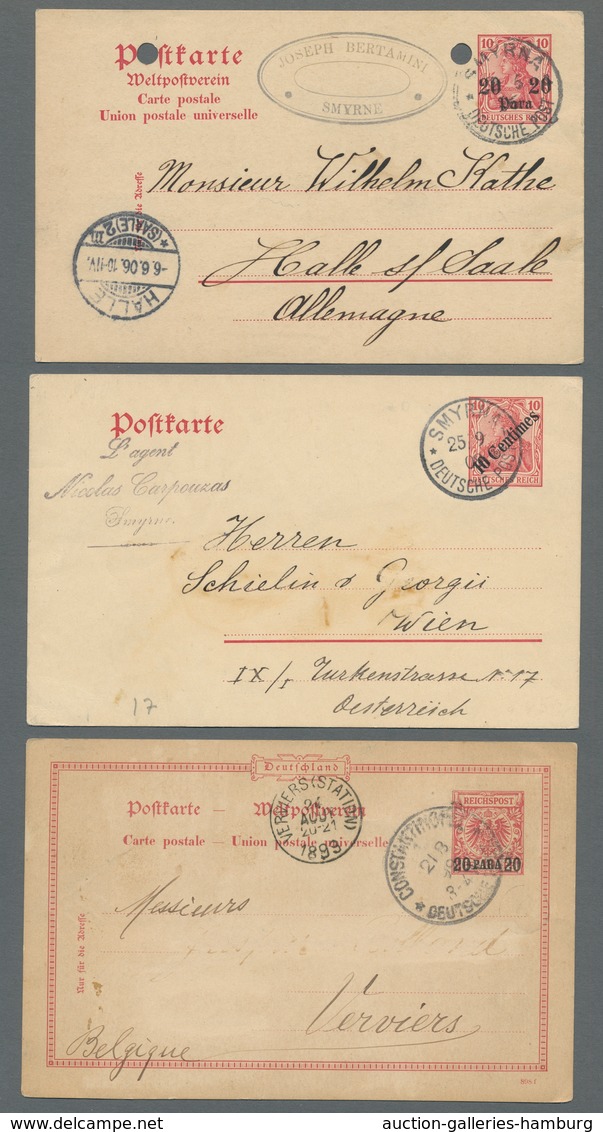 Postkarte
Weltpostverein
Carte postale
Union postale universelle
JOSEPH BERTAMINI
SMYRNE
10 10
20 20
Para
DEUTSCHES REICH
SMYRNA
* DEUTSCHE POST
Nur für die Adresse
Monsieur Wilhelm Kathe
Halle s/ Saale
Allemagne
HALLE
-6.6.06.10-11V.
* (SAALE) 2 m
Postkarte
L'agent
Nicolas Carpouzas
Smyrne
SMYRNA
25 9
* DEUTSCHE POST
10 10
10 Centimes
DEUTSCHES REICH
Herren
Schielin & Georgii
Wien
IX/I Türkenstrasse No 17
Oesterreich
17
Deutschland
Postkarte — Weltpostverein
Carte postale — Union postale universelle
VERVIERS (STATION)
24
AOUT
20-21
1899
CONSTANTINOPEL
21 8
* DEUTSCHE
REICHSPOST
20 PARA 20
Nur für die Adresse
Messieurs
Verviers
Belgique
auction-galleries-hamburg.com